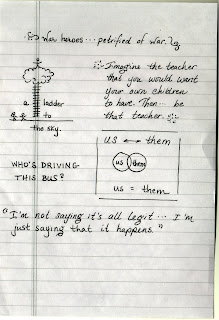 War heroes... petrified of war.
Imagine the teacher
that you would want
your own children
to have. Then... be
that teacher.
a ladder
to
the sky.
WHO'S DRIVING
THIS BUS?
us ↔ them
us them
us = them
"I'm not saying it's all legit... I'm
just saying that it happens."